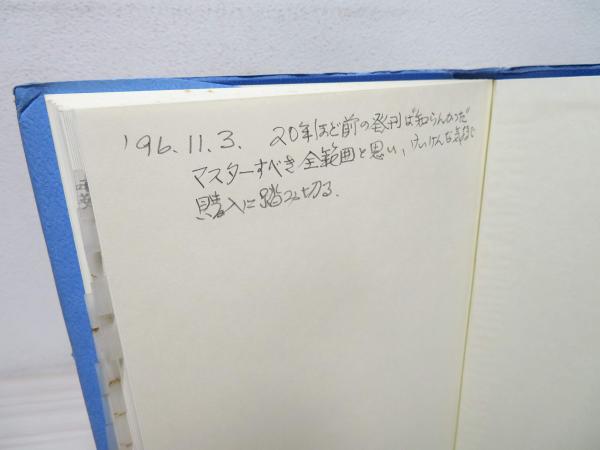 '96.11.3. 20年ほど前の発刊は"知らんかった"
マスターすべき全範囲と思い、けいけんな気持で
購入に踏み切る.